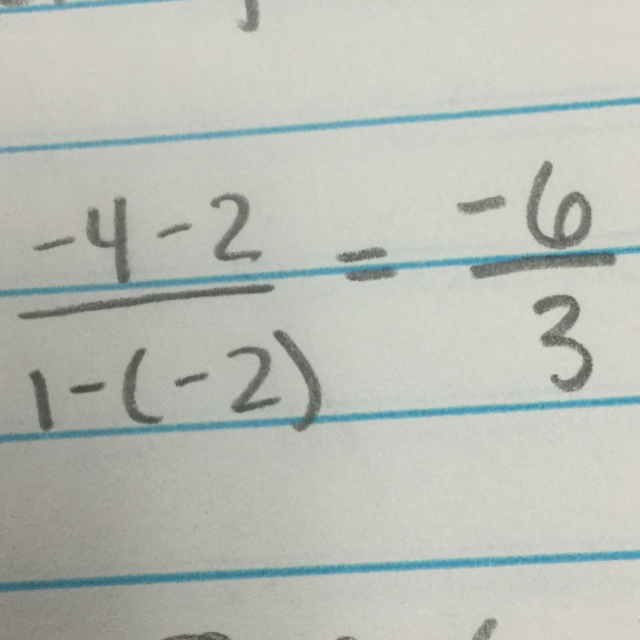 -4-2 / 1-(-2) = -6 / 3